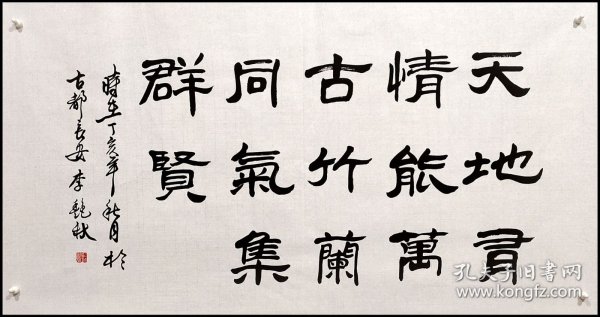 天地有
情能萬
古竹蘭
同氣集
群賢
時在丁亥年秋月於
古都長安李秋
孔夫子旧书网
www.kongfz.com